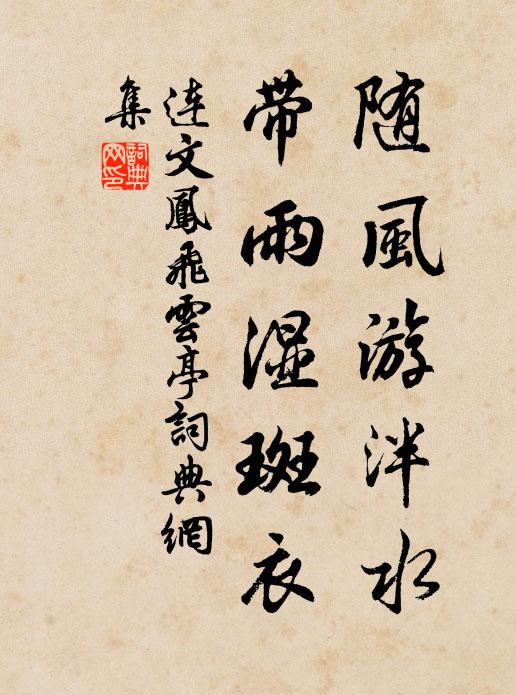 随風游泮水
带雨湿斑衣
連文鳳飛雲亭詞典網
集
詞典
网印